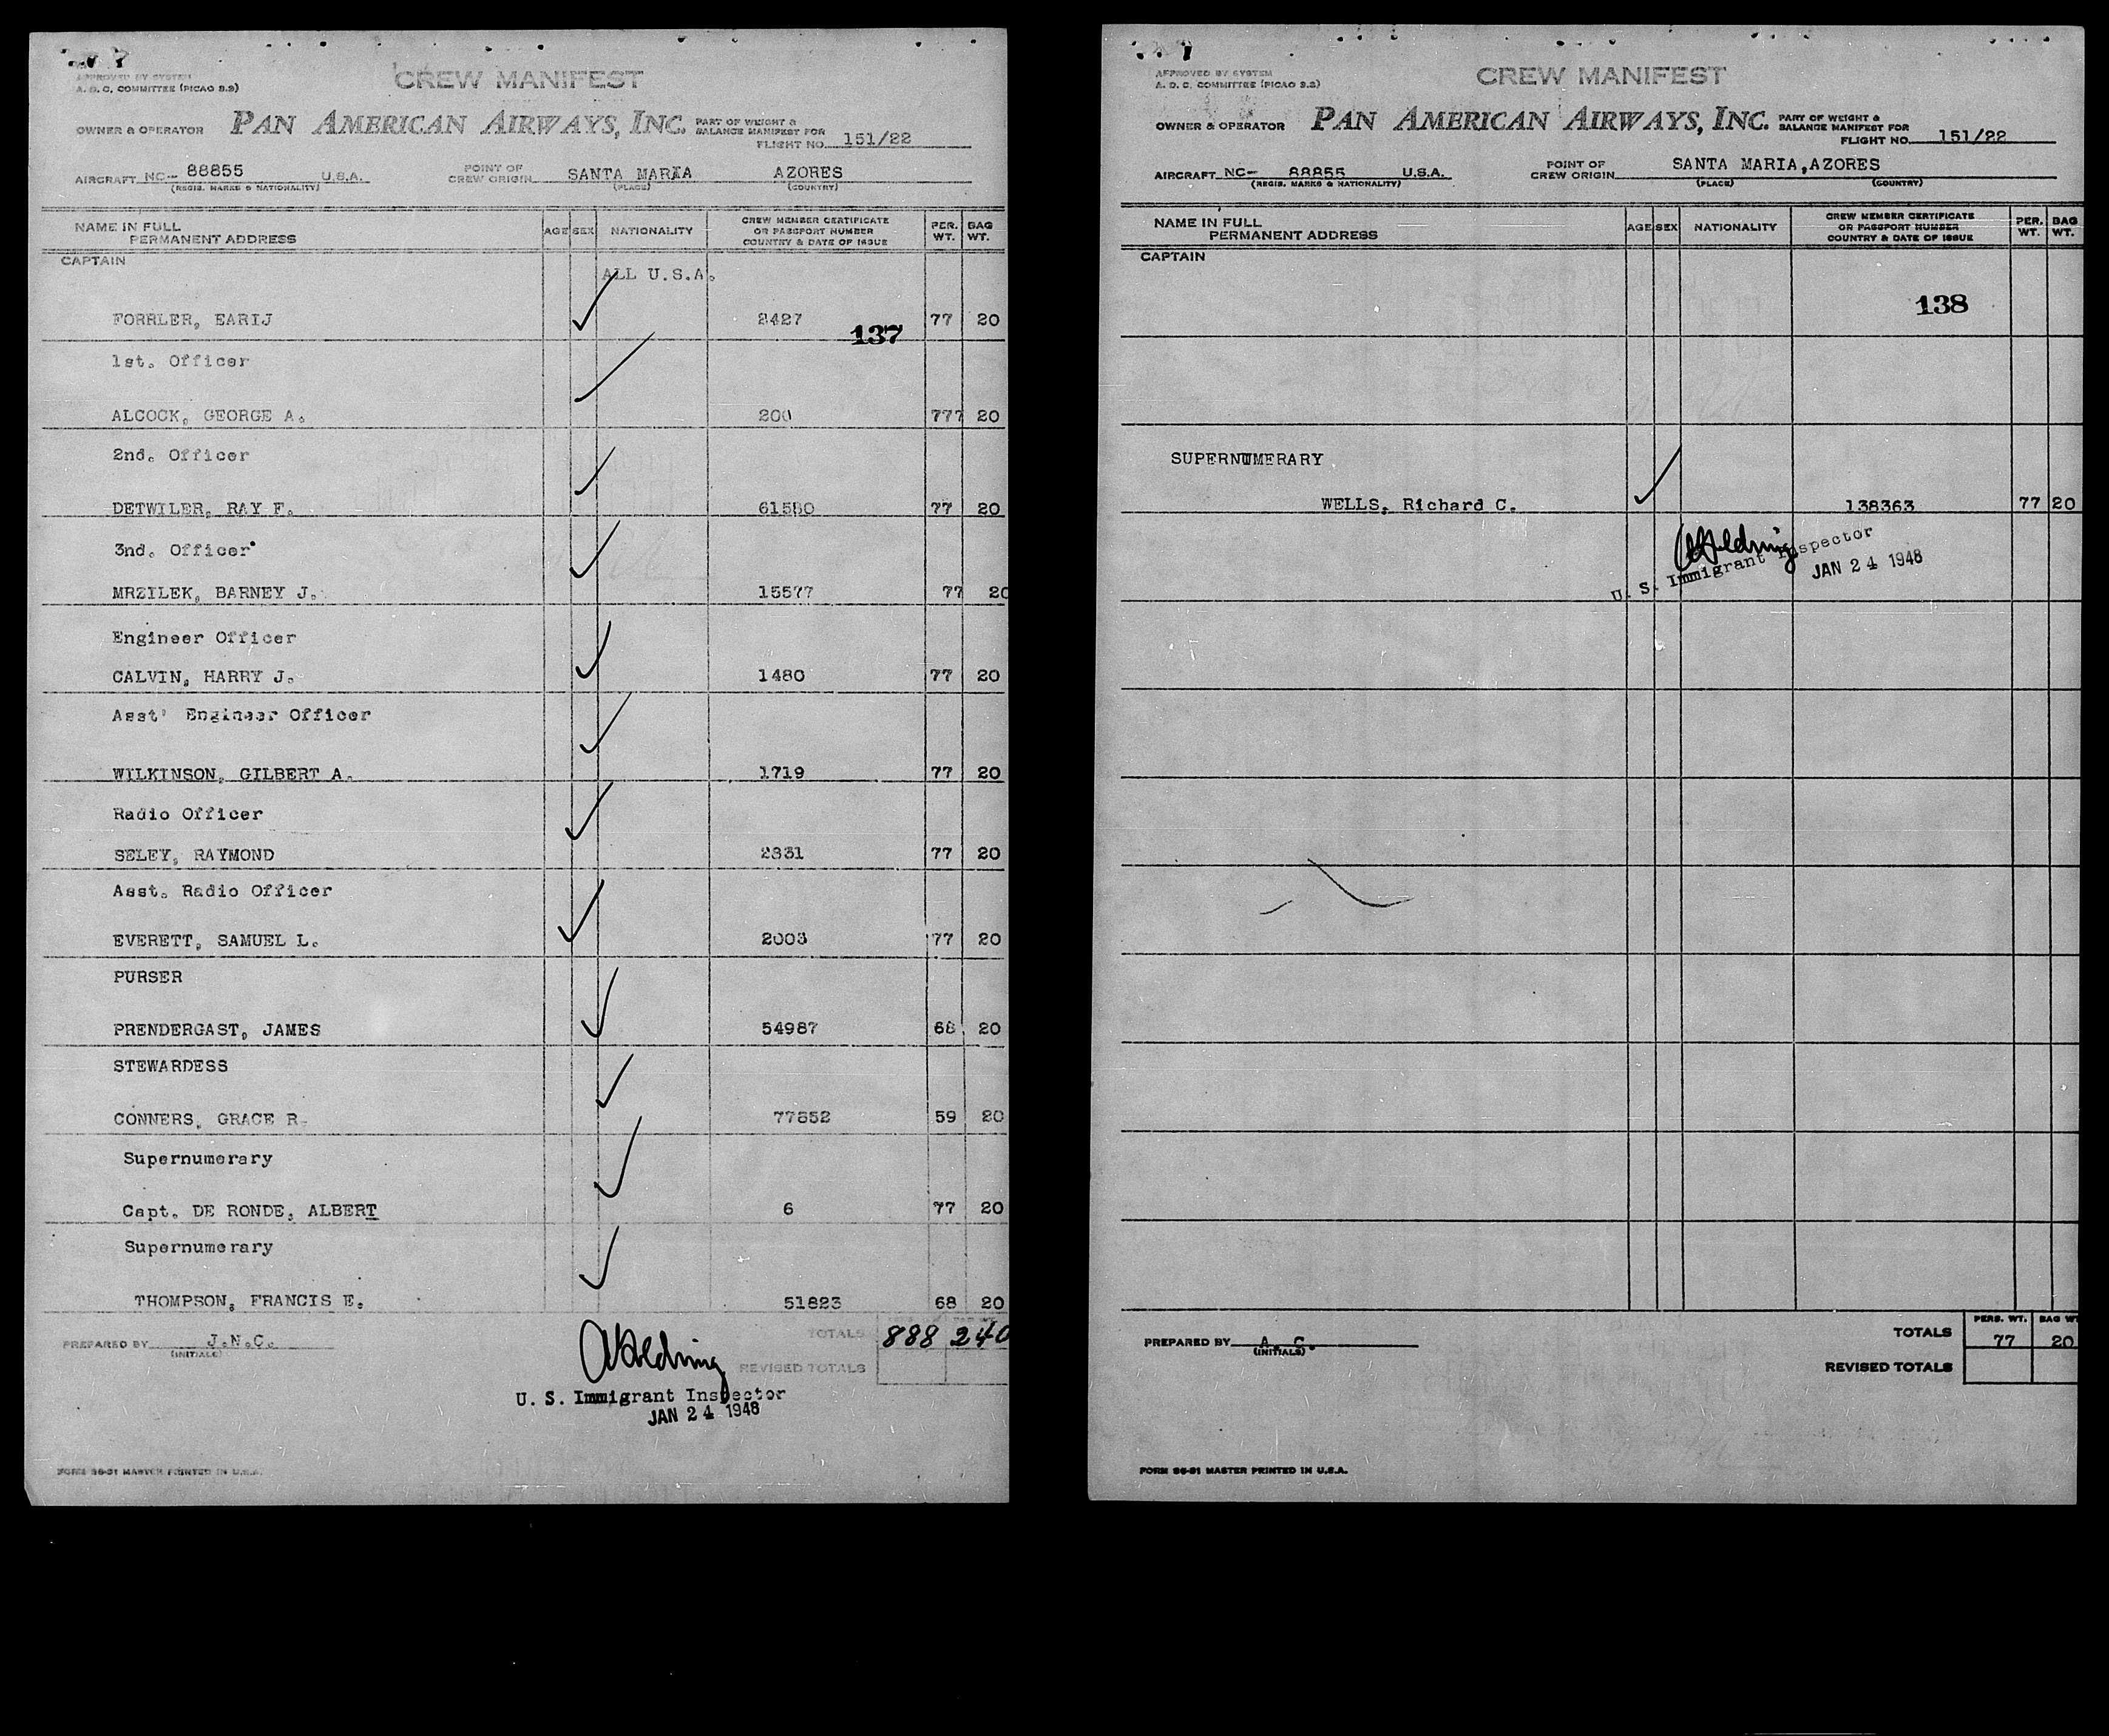 APPROVED BY SYSTEM
A. D. C. COMMITTEE (PICAO 2.2)
CREW MANIFEST
OWNER & OPERATOR PAN AMERICAN AIRWAYS, INC. PART OF WEIGHT &
BALANCE MANIFEST FOR
FLIGHT NO. 151/22
AIRCRAFT NC- 88855 U.S.A. POINT OF
CREW ORIGIN SANTA MARIA AZORES
(REGIS. MARKS & NATIONALITY) (PLACE) (COUNTRY)
NAME IN FULL
PERMANENT ADDRESS AGE SEX NATIONALITY CREW MEMBER CERTIFICATE
OR PASSPORT NUMBER
COUNTRY & DATE OF ISSUE PER.
WT. BAG
WT.
CAPTAIN ALL U.S.A.
FORRLER, EARIJ 2427 77 20
137
1st. Officer
ALCOCK, GEORGE A. 200 777 20
2nd. Officer
DETWILER, RAY F. 61580 77 20
3nd. Officer
MRZILEK, BARNEY J. 15577 77 20
Engineer Officer
CALVIN, HARRY J. 1480 77 20
Asst' Engineer Officer
WILKINSON, GILBERT A. 1719 77 20
Radio Officer
SELEY, RAYMOND 2331 77 20
Asst. Radio Officer
EVERETT, SAMUEL L. 2003 77 20
PURSER
PRENDERGAST, JAMES 54987 68 20
STEWARDESS
CONNERS, GRACE R. 77852 59 20
Supernumerary
Capt. DE RONDE, ALBERT 6 77 20
Supernumerary
THOMPSON, FRANCIS E. 51823 68 20
PREPARED BY J.N.C. TOTALS 888 240
(INITIALS)
REVISED TOTALS
U. S. Immigrant Inspector
JAN 24 1948
FORM 96-31 MASTER PRINTED IN U.S.A.
APPROVED BY SYSTEM
A. D. C. COMMITTEE (PICAO 2.2)
CREW MANIFEST
OWNER & OPERATOR PAN AMERICAN AIRWAYS, INC. PART OF WEIGHT &
BALANCE MANIFEST FOR
FLIGHT NO. 151/22
AIRCRAFT NC- 88855 U.S.A. POINT OF
CREW ORIGIN SANTA MARIA,AZORES
(REGIS. MARKS & NATIONALITY) (PLACE) (COUNTRY)
NAME IN FULL
PERMANENT ADDRESS AGE SEX NATIONALITY CREW MEMBER CERTIFICATE
OR PASSPORT NUMBER
COUNTRY & DATE OF ISSUE PER.
WT. BAG
WT.
CAPTAIN
138
SUPERNUMERARY
WELLS, Richard C. 138363 77 20
U. S. Immigrant Inspector
JAN 24 1948
PERS. WT. BAG WT
PREPARED BY A. C. TOTALS 77 20
(INITIALS)
REVISED TOTALS
FORM 96-31 MASTER PRINTED IN U.S.A.